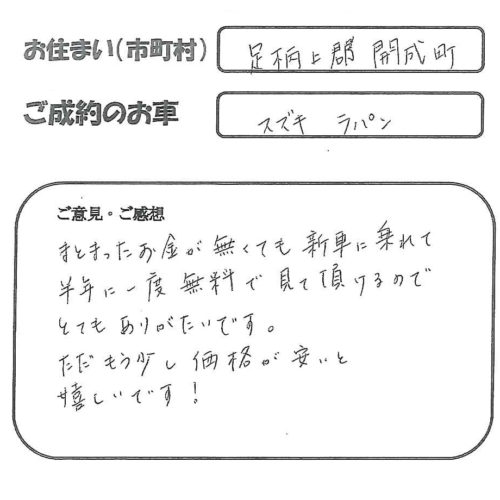 お住まい(市町村)
足柄上郡 開成町
ご成約のお車
スズキ ラパン
ご意見・ご感想
まとまったお金が無くても新車に乗れて
半年に一度無料で見て頂けるので
とてもありがたいです。
ただもう少し価格が安いと
嬉しいです!